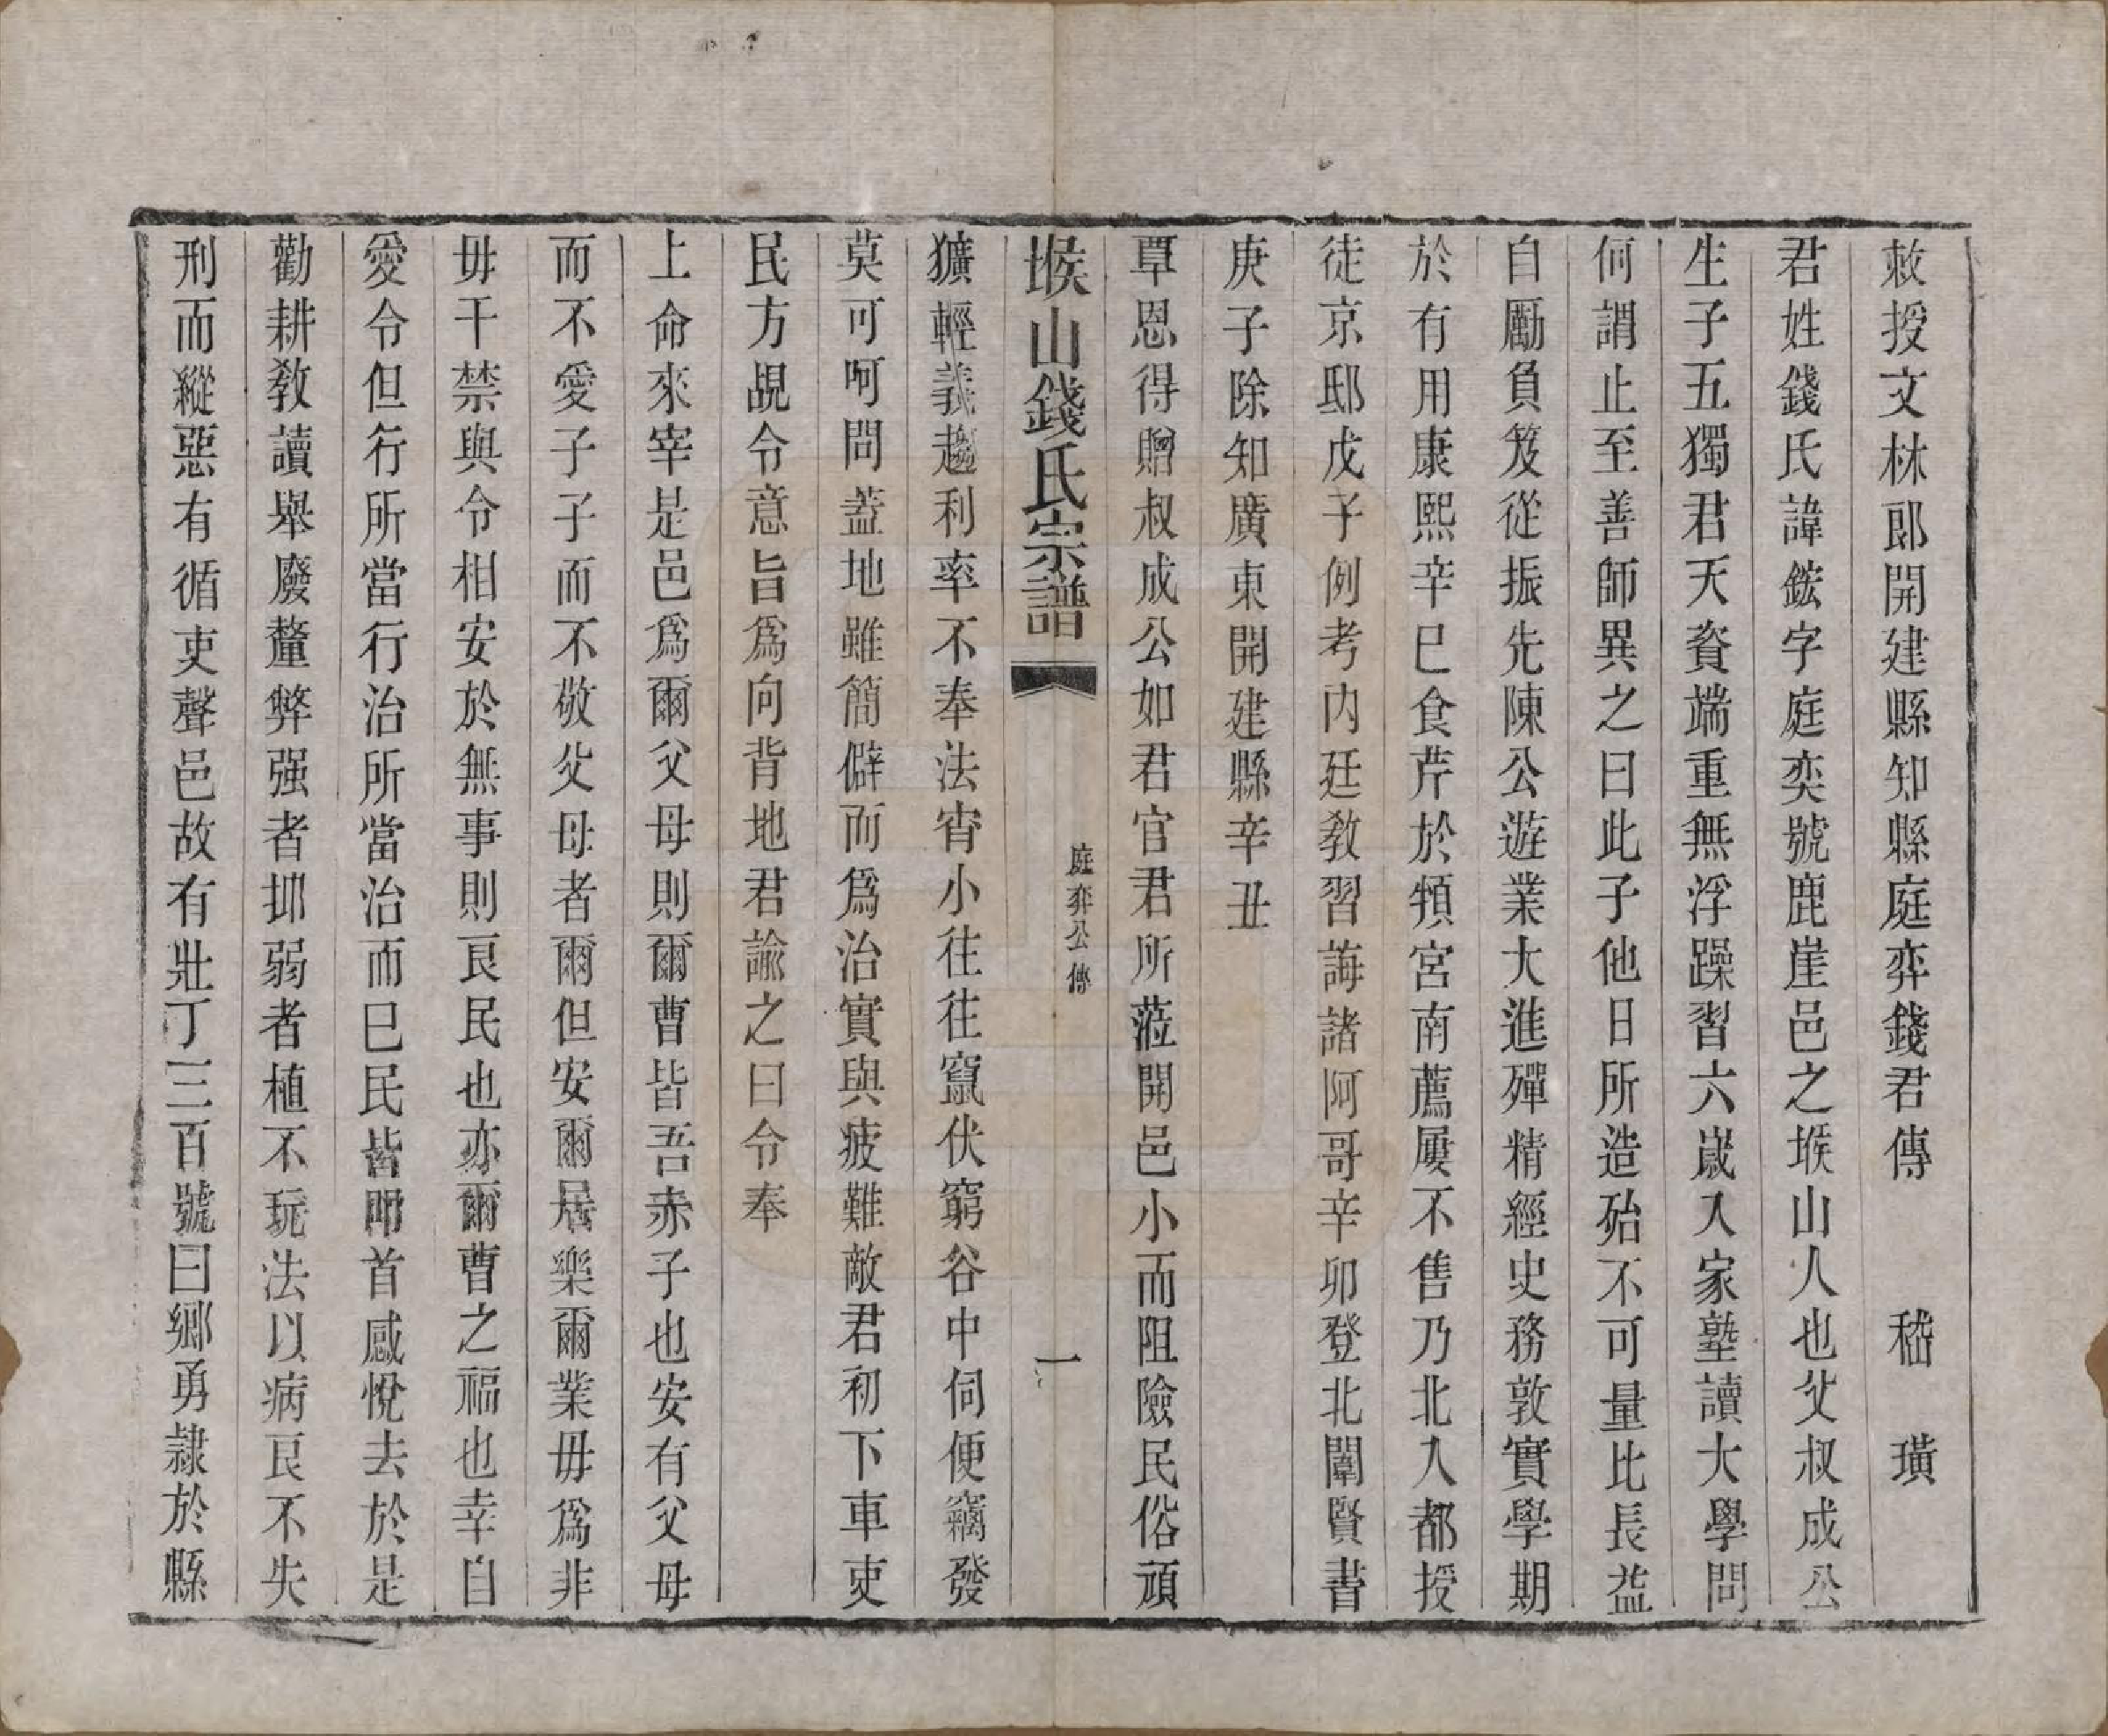 敕授文林郎開建縣知縣庭弈錢君傳　嵇　璜
君姓錢氏諱鋐字庭奕號鹿崖邑之堠山人也父叔成公
生子五獨君天資端重無浮躁習六歲入家塾讀大學問
何謂止至善師異之曰此子他日所造殆不可量比長益
自勵負笈從振先陳公遊業大進殫精經史務敦實學期
於有用康熙辛巳食芹於頖宮南薦屢不售乃北入都授
徒京邸戊子例考內廷教習誨諸阿哥辛卯登北闈賢書
庚子除知廣東開建縣辛丑
覃恩得贈叔成公如君官君所蒞開邑小而阻險民俗頑
堠山錢氏宗譜　庭弈公傳　一
獷輕義趨利率不奉法宵小往往竄伏窮谷中伺便竊發
莫可呵問蓋地雖簡僻而爲治實與疲難敵君初下車吏
民方覘令意旨爲向背地君諭之曰令奉
上命來宰是邑爲爾父母則爾曹皆吾赤子也安有父母
而不愛子子而不敬父母者爾但安爾居樂爾業毋爲非
毋干禁與令相安於無事則良民也亦爾曹之福也幸自
愛令但行所當行治所當治而已民皆叩首感悅去於是
勸耕教讀舉廢釐弊强者抑弱者植不玩法以病良不失
刑而縱惡有循吏聲邑故有壯丁三百號曰鄉勇隸於縣